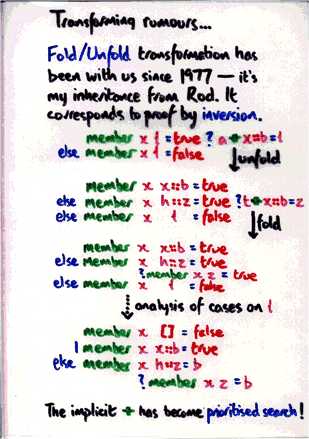 Transforming rumours...
Fold/Unfold transformation has
been with us since 1977 — it's
my inheritance from Rod. It
corresponds to proof by inversion.
member x l = true ? a ++ x::b = l
else member x l = false
unfold
member x x::b = true
else member x h::z = true ? t ++ x::b = z
else member x l = false
fold
member x x::b = true
else member x h::z = true
? member x z = true
else member x l = false
analysis of cases on l
member x [] = false
| member x x::b = true
else member x h::z = b
? member x z = b
The implicit ++ has become prioritised search!